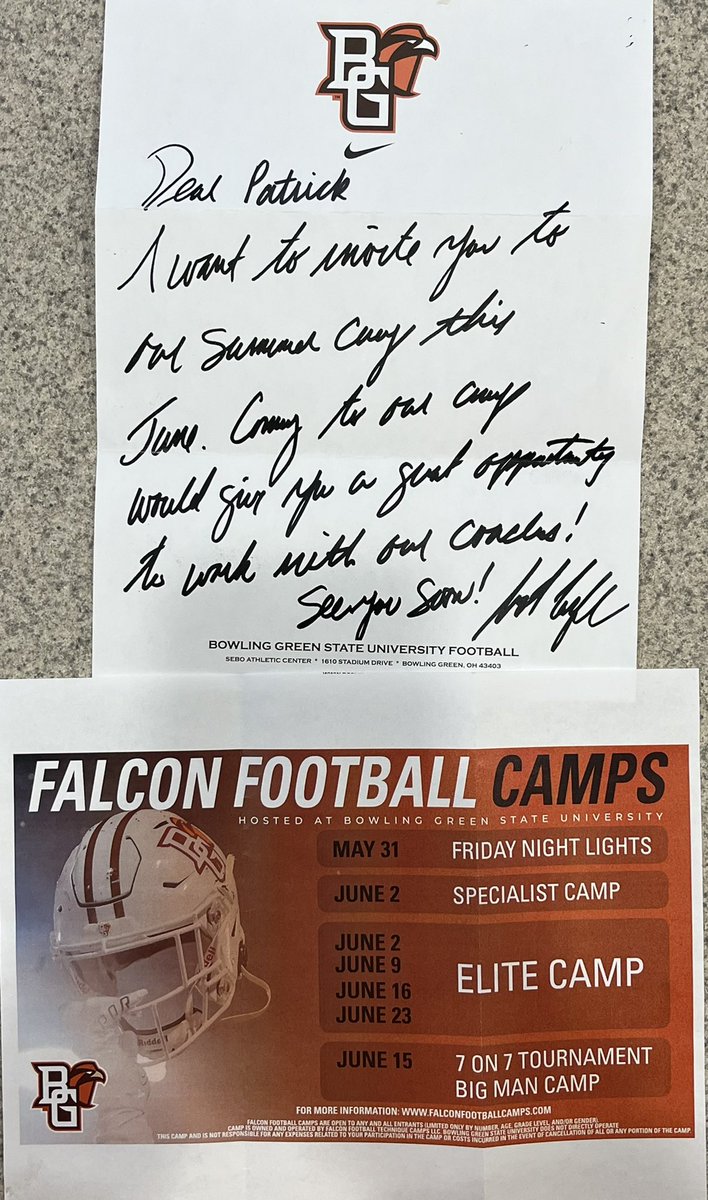 BG
Dear Patrick
I want to invite you to
our Summer Camp this
June. Coming to our camp
would give you a great opportunity
to work with our coaches!
See you Soon!
BOWLING GREEN STATE UNIVERSITY FOOTBALL
SEBO ATHLETIC CENTER * 1610 STADIUM DRIVE * BOWLING GREEN, OH 43403
FALCON FOOTBALL CAMPS
HOSTED AT BOWLING GREEN STATE UNIVERSITY
MAY 31 FRIDAY NIGHT LIGHTS
JUNE 2 SPECIALIST CAMP
JUNE 2
JUNE 9
JUNE 16
JUNE 23
ELITE CAMP
JUNE 15 7 ON 7 TOURNAMENT
BIG MAN CAMP
BG
Riddell
BG
FOR MORE INFORMATION: WWW.FALCONFOOTBALLCAMPS.COM
FALCON FOOTBALL CAMPS ARE OPEN TO ANY AND ALL ENTRANTS (LIMITED ONLY BY NUMBER, AGE, GRADE LEVEL, AND/OR GENDER).
CAMP IS OWNED AND OPERATED BY FALCON FOOTBALL TECHNIQUE CAMPS LLC. BOWLING GREEN STATE UNIVERSITY DOES NOT DIRECTLY OPERATE
THIS CAMP AND IS NOT RESPONSIBLE FOR ANY EXPENSES RELATED TO YOUR PARTICIPATION IN THE CAMP OR COSTS INCURRED IN THE EVENT OF CANCELLATION OF ALL OR ANY PORTION OF THE CAMP.